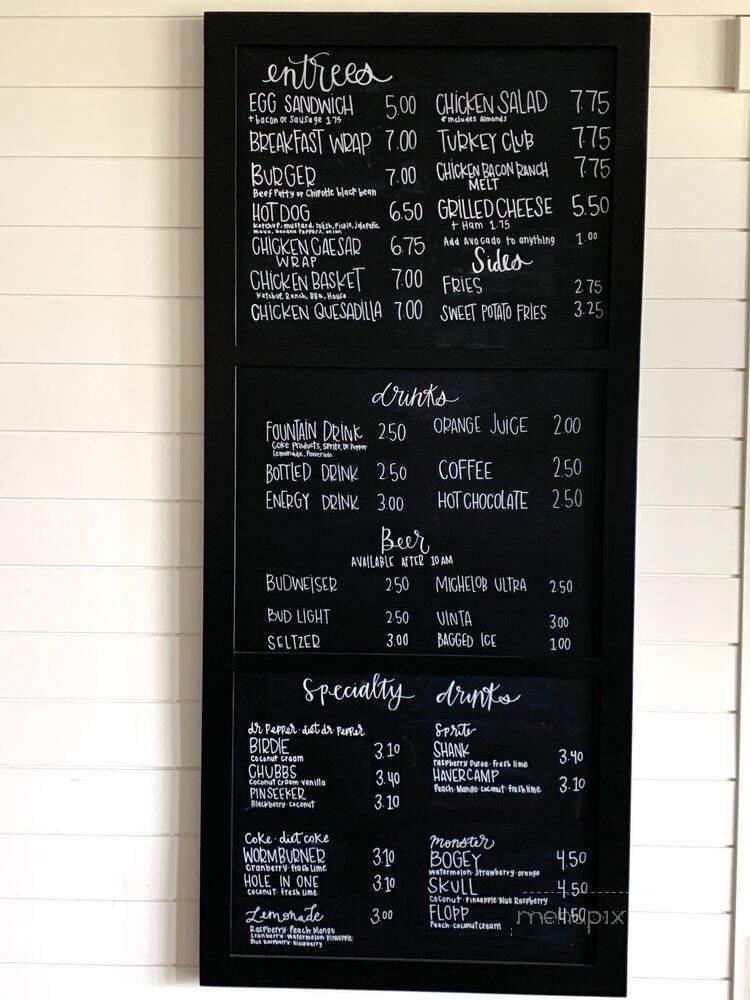 entrees
EGG SANDWICH 5.00
+ bacon or sausage 1.75
BREAKFAST WRAP 7.00
BURGER 7.00
Beef Patty or Chipotle black bean
HOT DOG 6.50
Ketchup, mustard, relish, Pickle, Jalapeño,
mayo, banana peppers, onion
CHICKEN CAESAR 6.75
WRAP
CHICKEN BASKET 7.00
Ketchup, Ranch, BBQ, House
CHICKEN QUESADILLA 7.00
CHICKEN SALAD 7.75
* Includes Almonds
TURKEY CLUB 7.75
CHICKEN BACON RANCH 7.75
MELT
GRILLED CHEESE 5.50
+ Ham 1.75
Add Avocado to anything 1.00
Sides
FRIES 2.75
SWEET POTATO FRIES 3.25
drinks
FOUNTAIN DRINK 2.50
Coke Products, Sprite, Dr. Pepper
Lemonade, Powerade
BOTTLED DRINK 2.50
ENERGY DRINK 3.00
ORANGE JUICE 2.00
COFFEE 2.50
HOT CHOCOLATE 2.50
Beer
AVAILABLE AFTER 10AM
BUDWEISER 2.50
BUD LIGHT 2.50
SELTZER 3.00
MICHELOB ULTRA 2.50
UINTA 3.00
BAGGED ICE 1.00
Specialty drinks
dr Pepper · diet dr Pepper
BIRDIE 3.10
Coconut Cream
CHUBBS 3.40
Coconut Cream · Vanilla
PINSEEKER 3.10
Blackberry · Coconut
Coke · diet coke
WORMBURNER 3.10
Cranberry · Fresh Lime
HOLE IN ONE 3.10
Coconut · Fresh Lime
Lemonade 3.00
Raspberry · Peach · Mango
Cranberry · Watermelon · Pineapple
Blue Raspberry · Blueberry
Sprite
SHANK 3.40
Raspberry Puree · fresh lime
HAVERCAMP 3.10
Peach · Mango · Coconut · fresh lime
monster
BOGEY 4.50
Watermelon · Strawberry · orange
SKULL 4.50
Coconut · Pineapple · Blue Raspberry
FLOPP 4.50
Peach · Coconut Cream
menupix